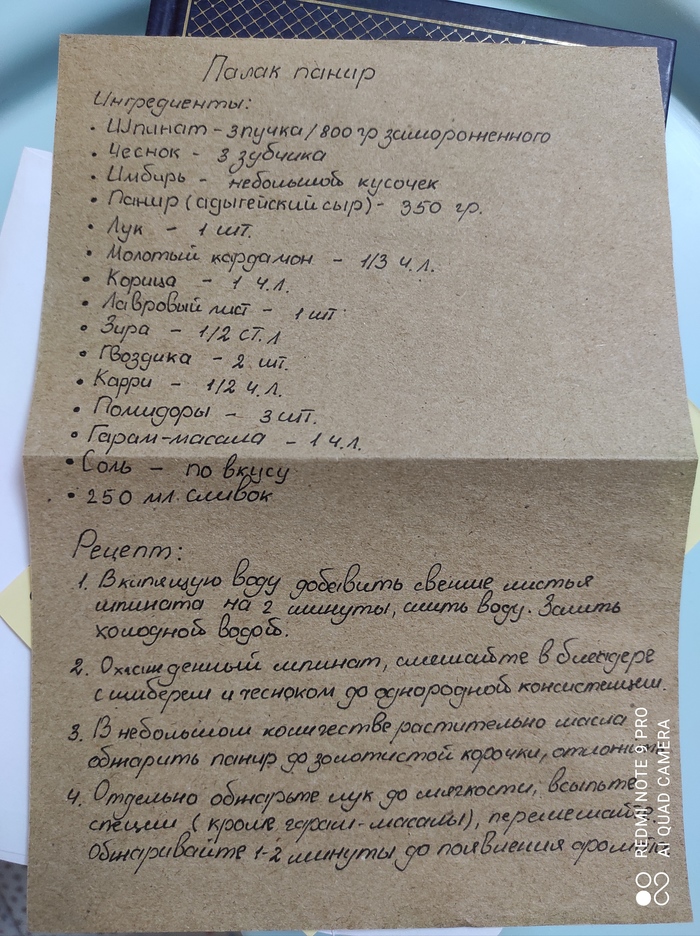 Палак панир
Ингредиенты:
• Шпинат - 3 пучка / 800 гр замороженного
• Чеснок - 3 зубчика
• Имбирь - небольшой кусочек
• Панир (адыгейский сыр) - 350 гр.
• Лук - 1 шт.
• Молотый кардамон - 1/3 ч.л.
• Корица - 1 ч.л.
• Лавровый лист - 1 шт
• Зира - 1/2 ст.л
• Гвоздика - 2 шт.
• Карри - 1/2 ч.л.
• Помидоры - 3 шт.
• Гарам-масала - 1 ч.л.
• Соль - по вкусу
• 250 мл. сливок
Рецепт:
1. В кипящую воду добавить свежие листья
шпината на 2 минуты, слить воду. Залить
холодной водой.
2. Охлажденный шпинат, смешайте в блендере
с имбирем и чесноком до однородной консистенции.
3. В небольшом количестве растительно масла
обжарить панир до золотистой корочки, отложить
4. Отдельно обжарьте лук до мягкости, всыпьте
специи (кроме гарам-масалы), перемешайте.
Обжаривайте 1-2 минуты до появления аромата
REDMI NOTE 9 PRO
AI QUAD CAMERA